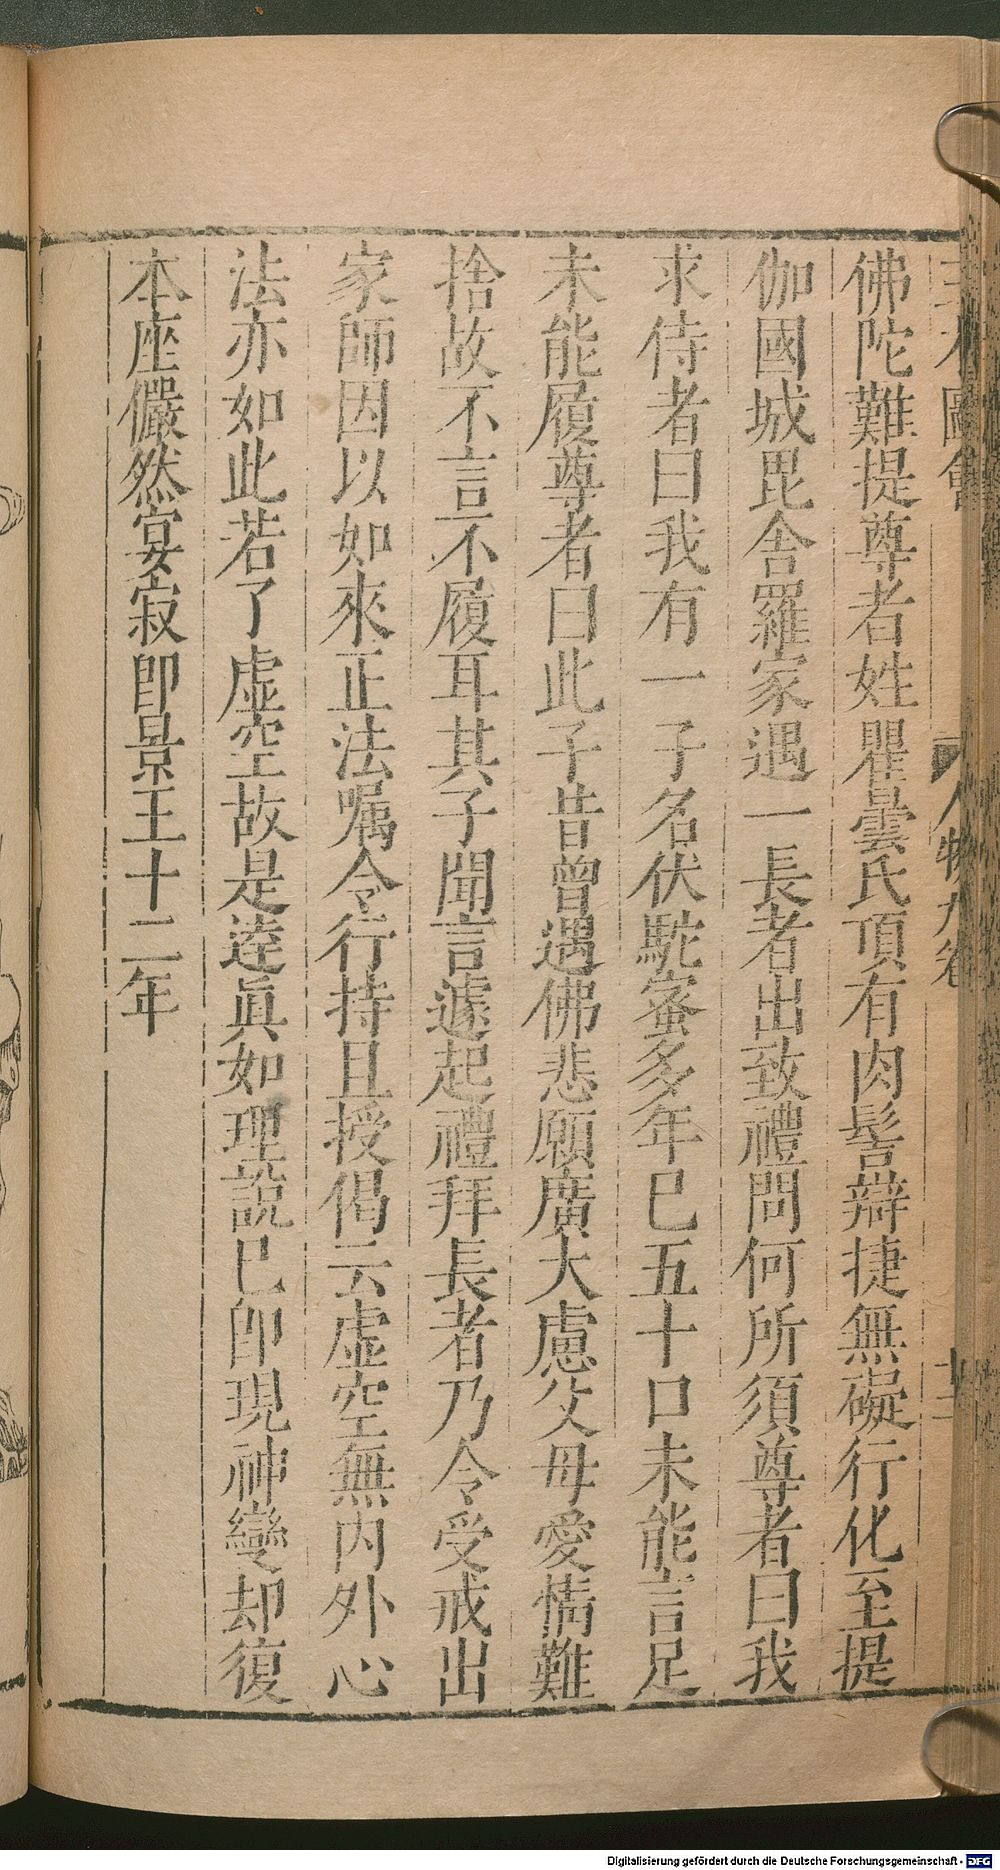 三才圖會 人物九卷
佛陀難提尊者姓瞿曇氏頂有肉髻辯捷無礙行化至提
伽國城毘舍羅家遇一長者出致禮問何所須尊者曰我
求侍者曰我有一子名伏馱蜜多年已五十口未能言足
未能履尊者曰此子昔曾遇佛悲願廣大慮父母愛情難
捨故不言不履耳其子聞言遽起禮拜長者乃令受戒出
家師因以如來正法囑令行持且授偈云虛空無内外心
法亦如此若了虛空故是達眞如理說已卽現神變却復
本座儼然宴寂卽景王十二年
Digitalisierung gefördert durch die Deutsche Forschungsgemeinschaft - DFG